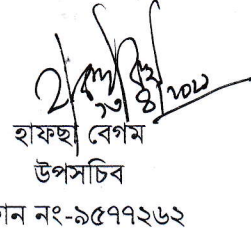 হাফছা বেগম
উপসচিব
ান নং-৯৫৭৭২৬২